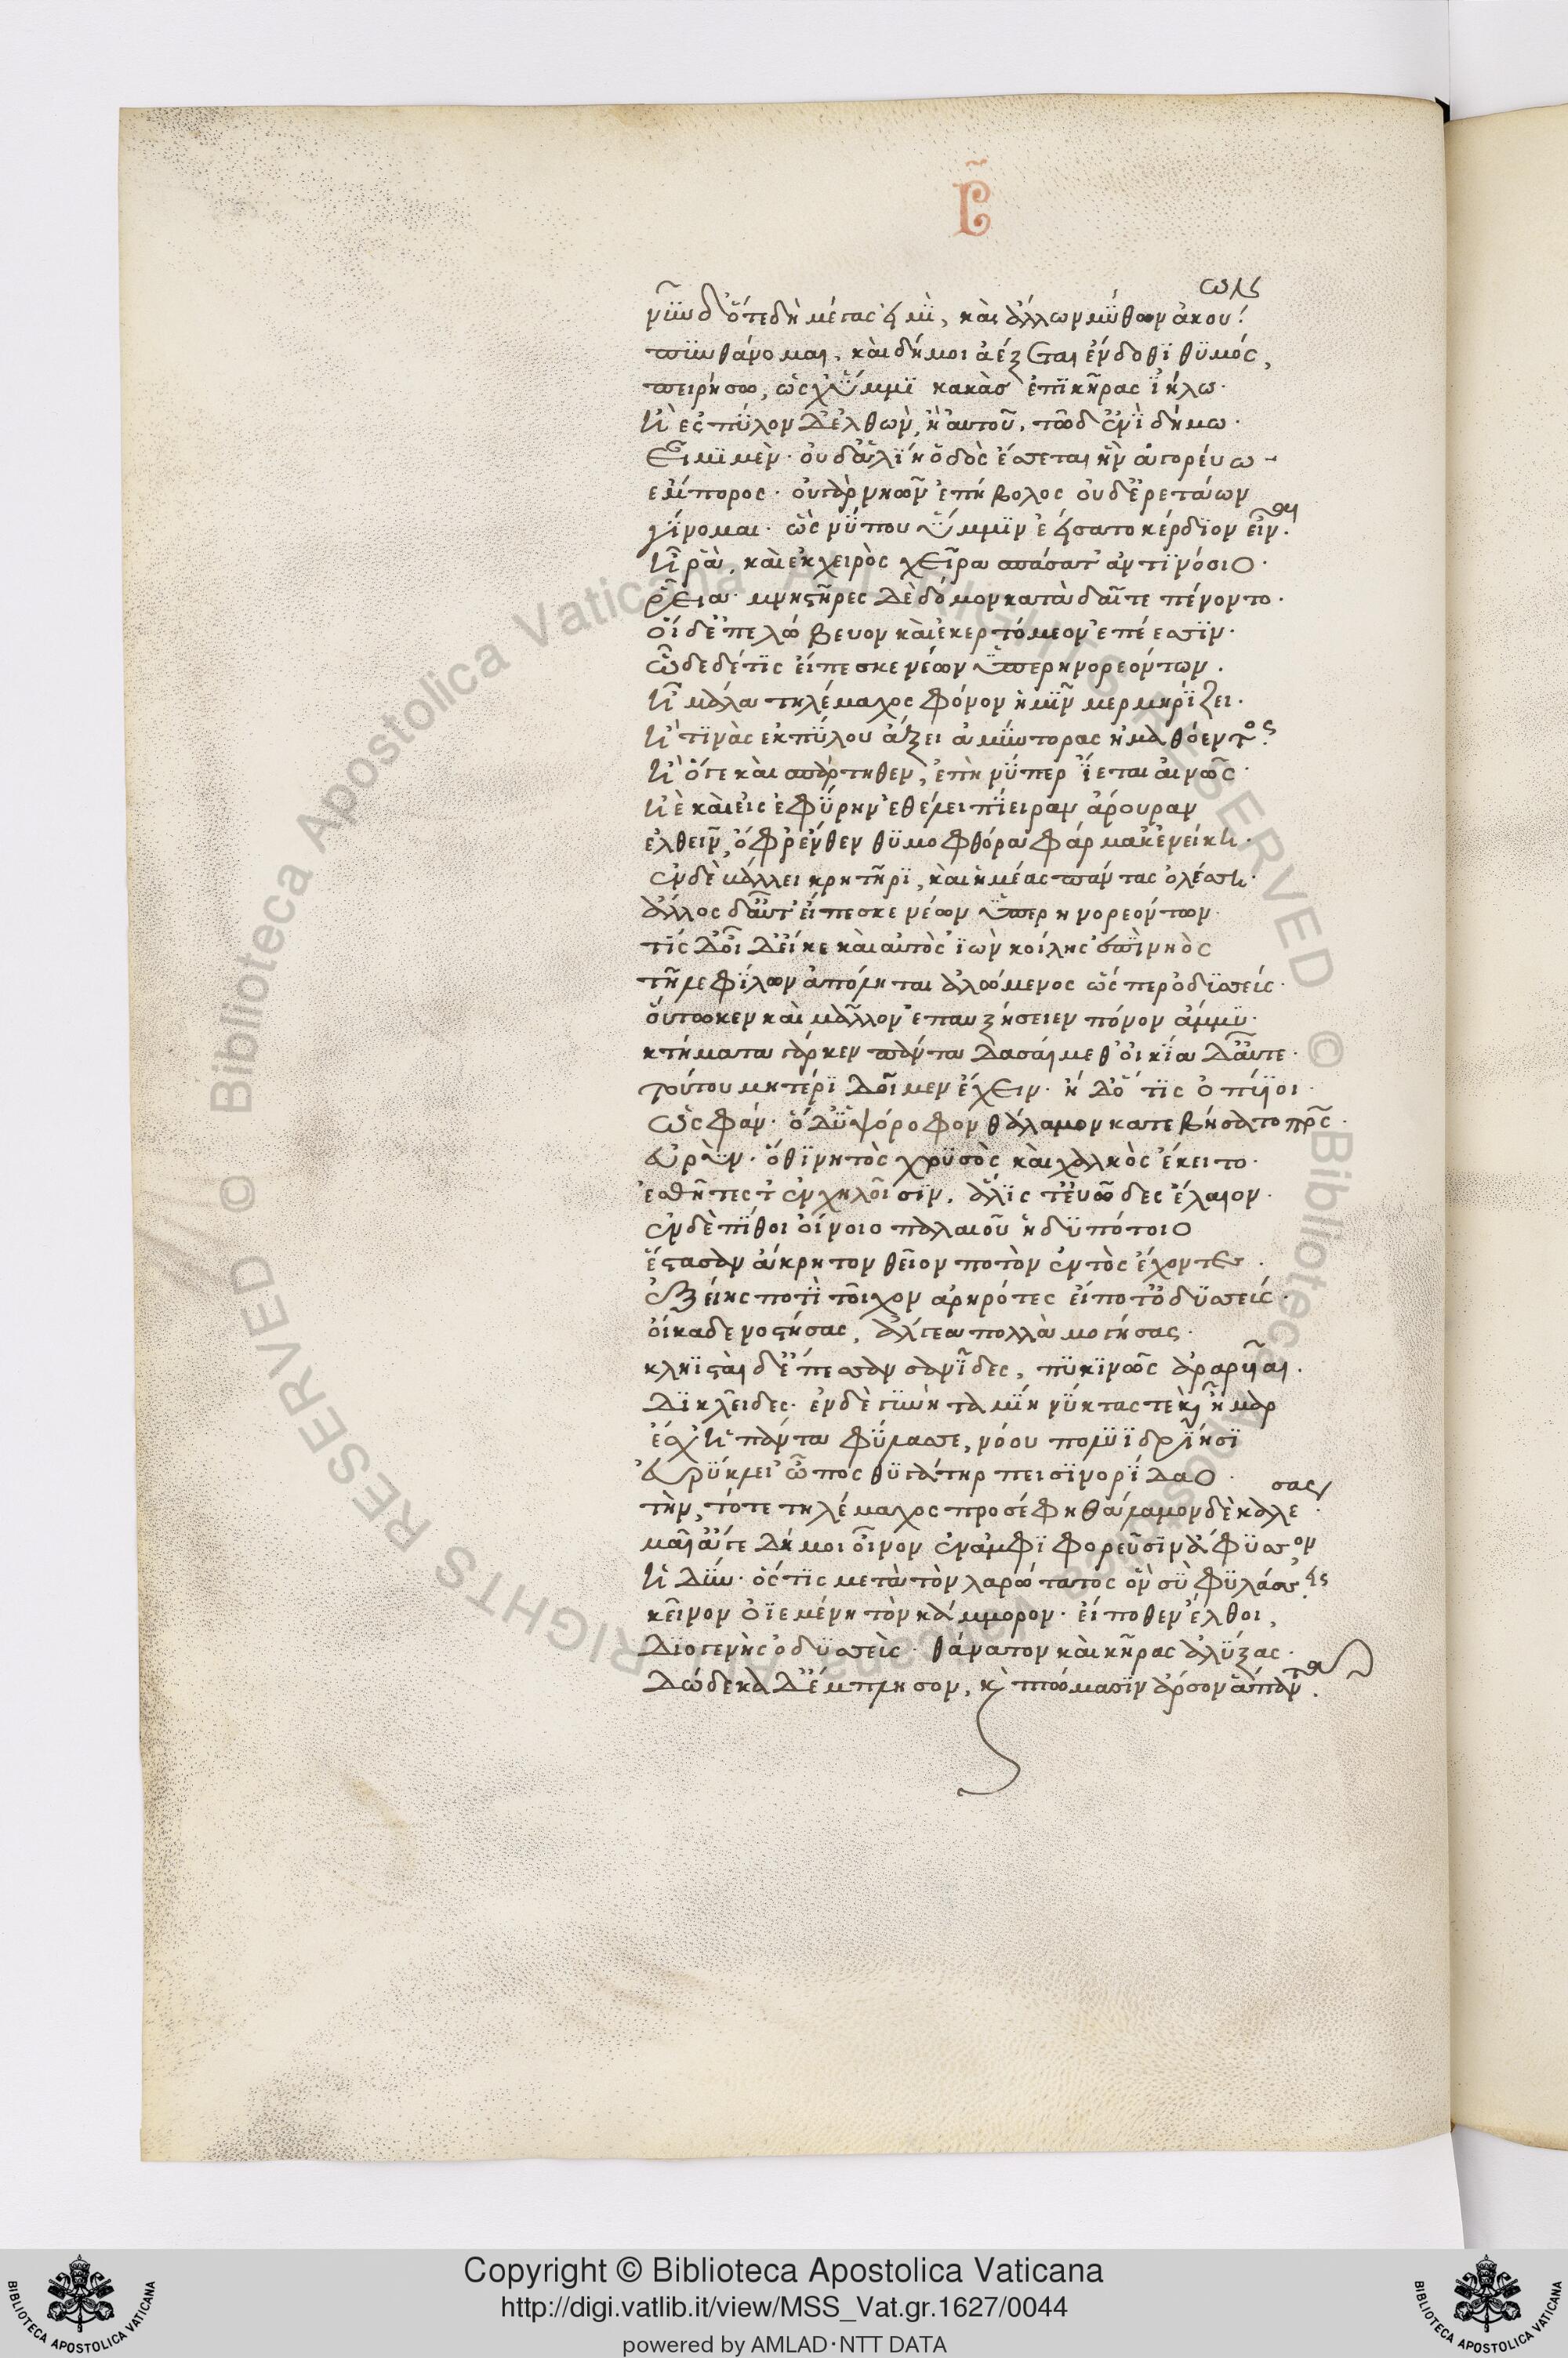 β̃
νῦν δ' ὅτε δὴ μέγας εἰμὶ, καὶ ἄλλων μύθων ἀκούων
πυνθάνομαι, καὶ δή μοι ἀέξεται ἔνδοθι θυμός,
πειρήσω, ὥς χ' ὔμμι κακὰσ ἐπὶ κῆρας ἰήλω·
ἠὲ ἐς πύλον δ' ἐλθὼν, ἢ αὐτοῦ, τῶδ' ἐνὶ δήμω·
εἶμι μὲν· οὐδ' ἁλίη ὁδὸς ἔσσεται ἣν ἀγορεύω
ἔμπορος· οὐ γὰρ νηῶν ἐπήβολος οὐδ' ἐρετάων
γίνομαι· ὥς νύ που ὔμμιν ἐείσατο κέρδιον εἶναι·
ἦ ῥα, καὶ ἐκ χειρὸς χεῖρα σπάσατ' ἀντινόοιο·
ῥεῖα· μνηστῆρες δὲ δόμον κατὰ δαῖτα πένοντο·
οἱ δ' ἐπελώβευον καὶ ἐκερτόμεον ἐπέεσσιν·
ὧδε δέ τις εἴπεσκε νέων ὑπερηνορεόντων·
ἦ μάλα τηλέμαχος φόνον ἡμῖν μερμηρίζει·
ἤ τινὰς ἐκ πύλου ἄξει ἀμύντορας ἠμαθόεντος·
ἢ ὅγε καὶ σπάρτηθεν, ἐπὴ νύ περ ἵεται αἰνῶς·
ἠὲ καὶ εἰς ἐφύρην ἐθέλει πίειραν ἄρουραν
ἐλθεῖν, ὄφρ' ἔνθεν θυμοφθόρα φάρμακ' ἐνείκη·
ἐν δὲ βάλλει κρητῆρι, καὶ ἡμέας πάντας ὀλέσση·
ἄλλος δ' αὖτ' εἴπεσκε νέων ὑπερηνορεόντων·
τίς δ' οἶδ' εἴ κε καὶ αὐτὸς ἰὼν κοίλης ἐπὶ νηὸς
τῆλε φίλων ἀπόληται ἀλώμενος ὥς περ ὀδυσσεύς·
οὕτω κεν καὶ μᾶλλον ἐπαυξήσειεν πόνον ἄμμιν·
κτήματα γάρ κεν πάντα δασαίμεθ' οἰκία δ' αὖτε·
τούτου μητέρι δοῖμεν ἔχειν· ἠδ' ὅς τις ὀπυίοι·
ὣς φάν· ὁ δ' ὑψόροφον θάλαμον κατεβήσατο πατρὸς·
εὐρὺν· ὅθι νητὸς χρυσὸς καὶ χαλκὸς ἔκειτο·
ἐσθῆτές τ' ἐν χηλοῖσιν, ἅλις τ' εὐῶδες ἔλαιον·
ἐν δὲ πίθοι οἴνοιο παλαιοῦ ἡδυπότοιο
ἕστασαν ἄκρητον θεῖον ποτὸν ἐντὸς ἔχοντες·
ἑξείης ποτὶ τοῖχον ἀρηρότες εἴ ποτ' ὀδυσσεύς·
οἴκαδε νοστήσας, ἄλγεα πολλὰ μογήσας·
κληισταὶ δ' ἔπεσαν σανίδες, πυκινῶς ἀραρυῖαι·
δικλεῖδες· ἐν δὲ γυνὴ ταμίη νύκτας τε καὶ ἦμαρ
ἔσχ' ἣ πάντα φύλασσε, νόου πολυϊδρίησι
εὐρύκλει' ὦπος θυγάτηρ πεισηνορίδαο·
τὴν, τότε τηλέμαχος προσέφη θάλαμον δὲ καλέσσας·
μαῖ' ἄγε δή μοι οἶνον ἐν ἀμφιφορεῦσιν ἄφυσσον
ἡδύν· ὅς τις μετὰ τὸν λαρώτατος ὃν σὺ φυλάσσεις·
κεῖνον ὀϊεμένη τὸν κάμμορον· εἴ ποθεν ἔλθοι,
διογενὴς ὀδυσσεὺς· θάνατον καὶ κῆρας ἀλύξας·
δώδεκα δ' ἔμπλησον, καὶ πώμασιν ἄρσον ἅπαντας·
Copyright © Biblioteca Apostolica Vaticana
http://digi.vatlib.it/view/MSS_Vat.gr.1627/0044
powered by AMLAD·NTT DATA